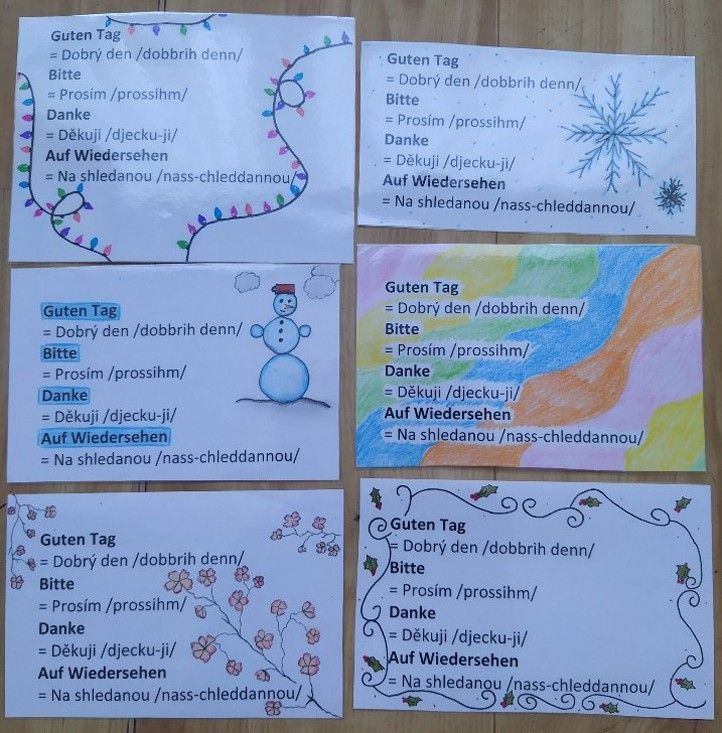 Guten Tag
= Dobrý den /dobbrih denn/
Bitte
= Prosím /prossihm/
Danke
= Děkuji /djecku-ji/
Auf Wiedersehen
= Na shledanou /nass-chleddannou/
Guten Tag
= Dobrý den /dobbrih denn/
Bitte
= Prosím /prossihm/
Danke
= Děkuji /djecku-ji/
Auf Wiedersehen
= Na shledanou /nass-chleddannou/
Guten Tag
= Dobrý den /dobbrih denn/
Bitte
= Prosím /prossihm/
Danke
= Děkuji /djecku-ji/
Auf Wiedersehen
= Na shledanou /nass-chleddannou/
Guten Tag
= Dobrý den /dobbrih denn/
Bitte
= Prosím /prossihm/
Danke
= Děkuji /djecku-ji/
Auf Wiedersehen
= Na shledanou /nass-chleddannou/
Guten Tag
= Dobrý den /dobbrih denn/
Bitte
= Prosím /prossihm/
Danke
= Děkuji /djecku-ji/
Auf Wiedersehen
= Na shledanou /nass-chleddannou/
Guten Tag
= Dobrý den /dobbrih denn/
Bitte
= Prosím /prossihm/
Danke
= Děkuji /djecku-ji/
Auf Wiedersehen
= Na shledanou /nass-chleddannou/